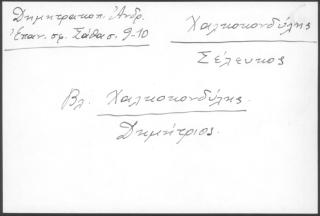 Δημητρακοπ. Ἀνδρ.
Ἐπαν. σμ. Σάθασ. 9-10
Χαλκοκονδύλης
Σέλευκος
Βλ. Χαλκοκονδύλης.
Δημήτριος.